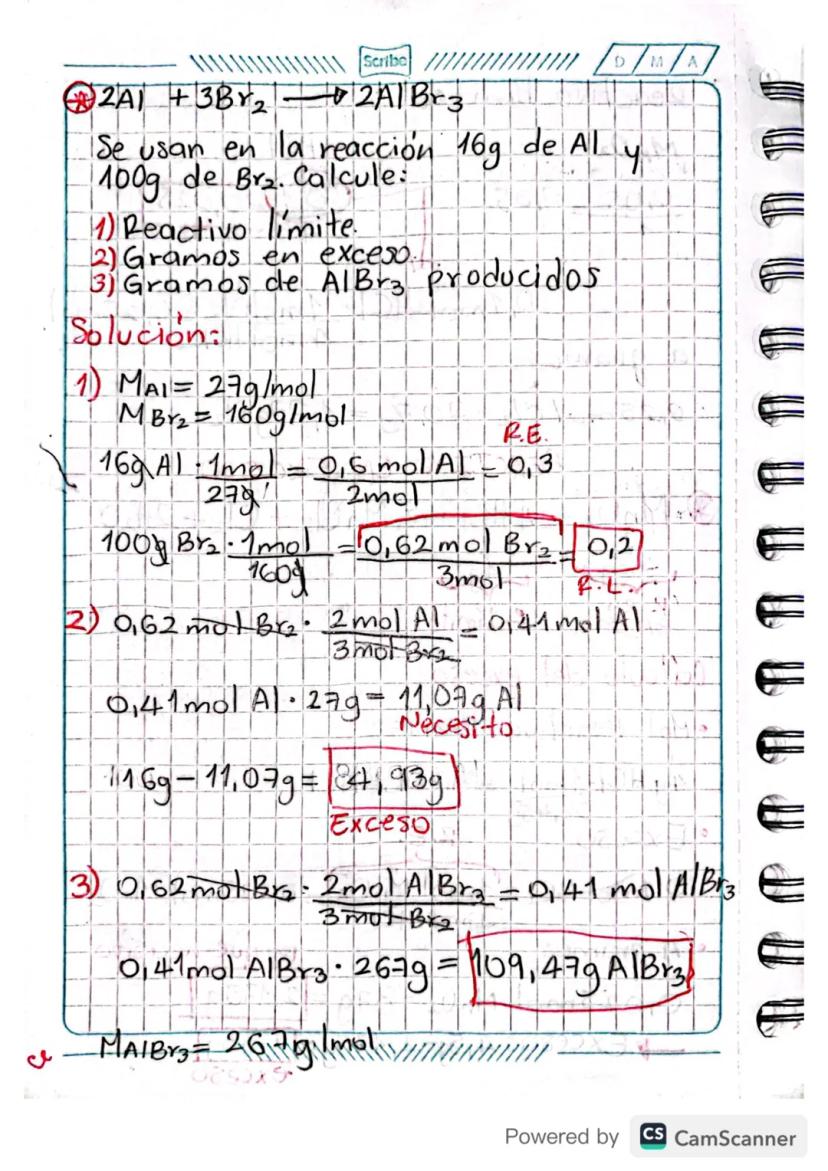 Scribe D M A
2Al + 3Br₂ → 2AlBr₃
Se usan en la reacción 16g de Al y
100g de Br₂. Calcule:
1) Reactivo límite.
2) Gramos en exceso.
3) Gramos de AlBr₃ producidos
Solución:
1) MAl = 27g/mol
MBr₂ = 160g/mol
R.E.
16g Al · 1mol = 0,6 mol Al = 0,3
27g 2mol
100g Br₂ · 1mol = 0,62 mol Br₂ = 0,2
160g 3mol R.L.
2) 0,62 mol Br₂ · 2mol Al = 0,41 mol Al
3mol Br₂
0,41mol Al · 27g = 11,07g Al
Necesito
16g - 11,07g = 4,93g
Exceso
3) 0,62 mol Br₂ · 2mol AlBr₃ = 0,41 mol AlBr₃
3mol Br₂
0,41mol AlBr₃ · 267g = 109,47g AlBr₃
MAlBr₃ = 267g/mol
Powered by CS CamScanner